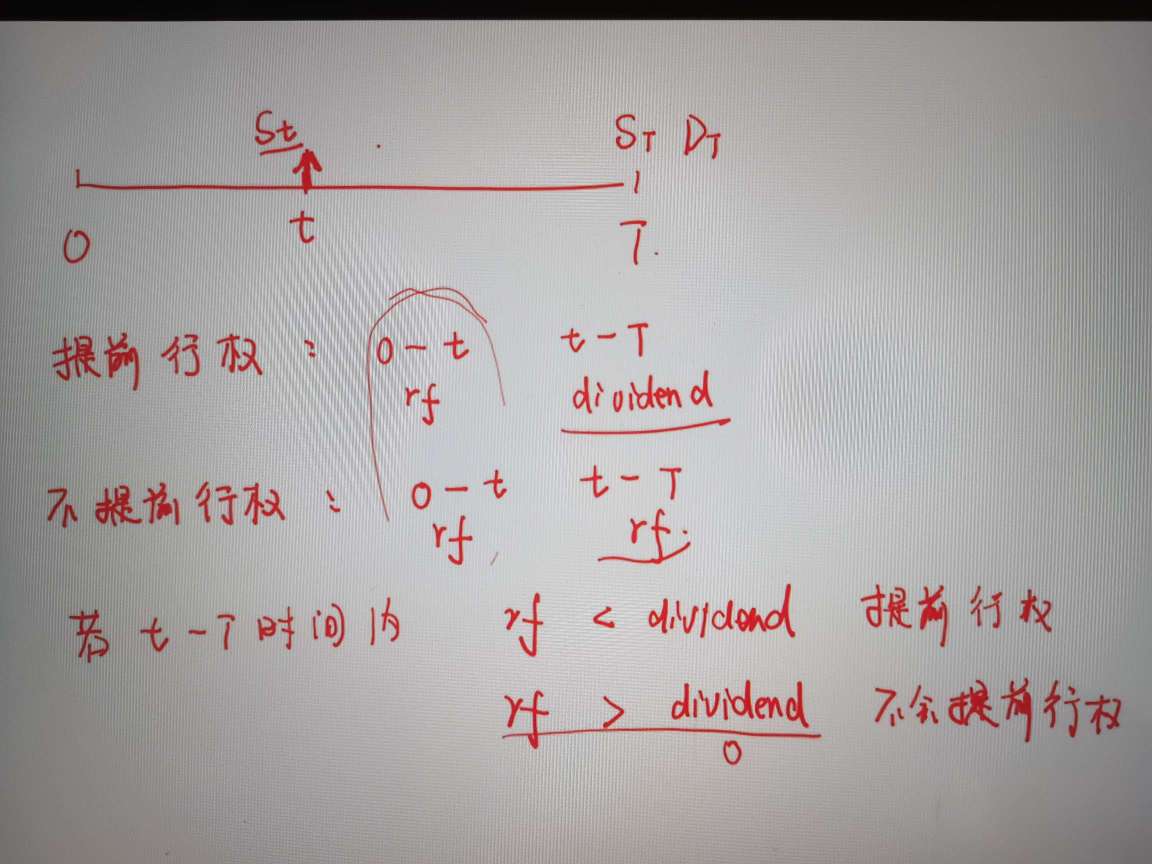 St ST DT
0 t T.
提前行权： 0-t t-T
rf dividend
不提前行权： 0-t t-T
rf rf.
若 t-T 时间内 rf < dividend 提前行权
rf > dividend 不会提前行权
0